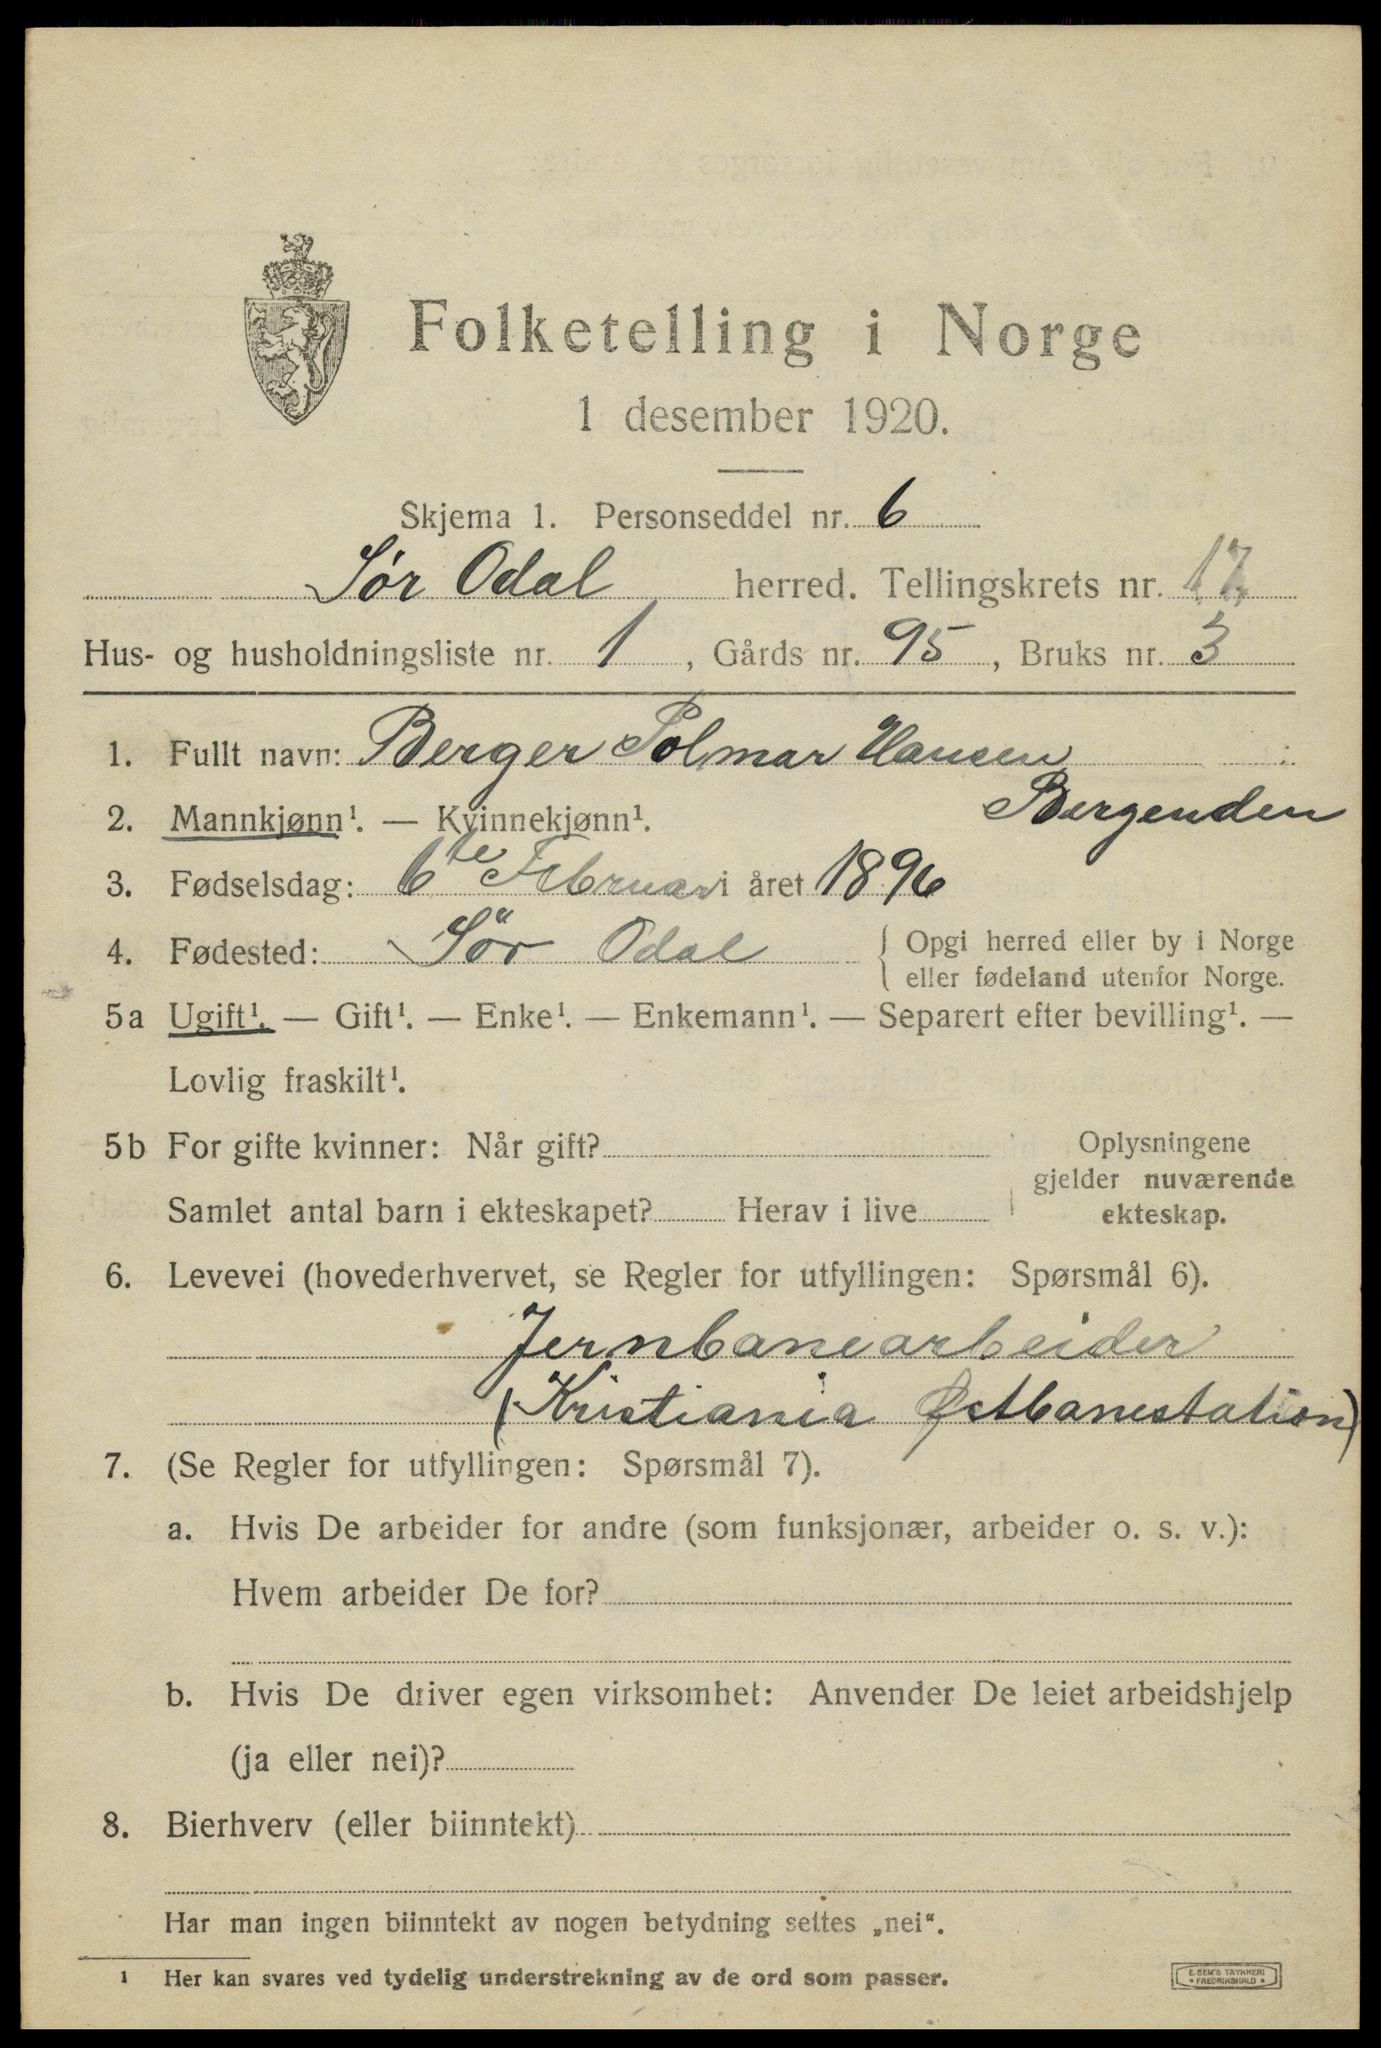 Folketelling i Norge
1 desember 1920.
Skjema 1. Personseddel nr. 6
Sør Odal herred. Tellingskrets nr. 17
Hus- og husholdningsliste nr. 1, Gårds nr. 95, Bruks nr. 3
1. Fullt navn: Berger Polmar Hansen
Bergenden
2. Mannkjønn¹. — Kvinnekjønn¹.
3. Fødselsdag: 6te Februar i året 1896
4. Fødested: Sør Odal { Opgi herred eller by i Norge
eller fødeland utenfor Norge.
5a Ugift¹. — Gift¹. — Enke¹. — Enkemann¹. — Separert efter bevilling¹. —
Lovlig fraskilt¹.
5b For gifte kvinner: Når gift? Oplysningene
gjelder nuværende
Samlet antal barn i ekteskapet? Herav i live ekteskap.
6. Levevei (hovederhvervet, se Regler for utfyllingen: Spørsmål 6).
Jernbanearbeider
(Kristiania Østbanestation)
7. (Se Regler for utfyllingen: Spørsmål 7).
a. Hvis De arbeider for andre (som funksjonær, arbeider o. s. v.):
Hvem arbeider De for?
b. Hvis De driver egen virksomhet: Anvender De leiet arbeidshjelp
(ja eller nei)?
8. Bierhverv (eller biinntekt)
Har man ingen biinntekt av nogen betydning settes „nei“.
¹ Her kan svares ved tydelig understrekning av de ord som passer.
E. SEM'S TRYKKERI
• FREDRIKSHALD •